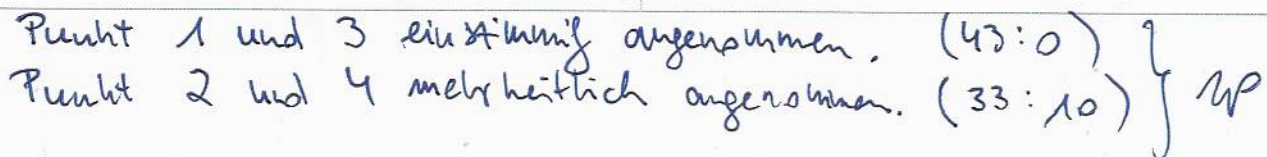 Punkt 1 und 3 einstimmig angenommen. (43:0)
Punkt 2 und 4 mehrheitlich angenommen. (33:10)